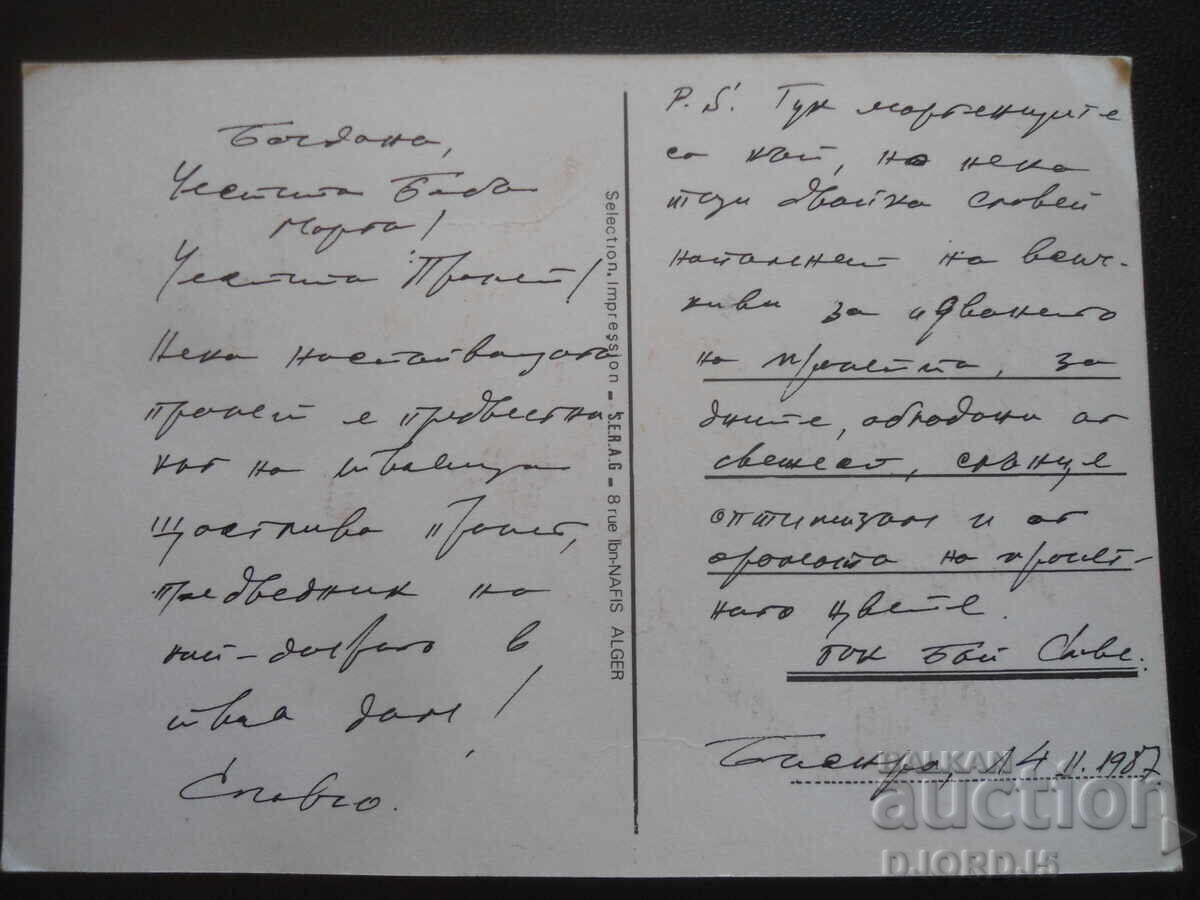 Богдана,
Честита Баба
Марта!
Честита Пролет!
Нека настъпващата
пролет е предвестни
кът на
щастлива пролет,
предведник на
най-доброто в
твоя дом!
Славчо.
Selection. Impression - S.E.R.A.G - 8 rue Ibn-NAFIS ALGER
P.S. Тук мартениците
са кът, но нека
тази двойка славеи
напомнят на всич-
киви за идването
на пролетта, за
дните, обладани от
свежест, слънце
оптимизъм и от
аромата на пролет-
ното цвете.
пак Бай Славе.
Бискра, 14 II. 1987
BALKAN
auction
DJORDJ5